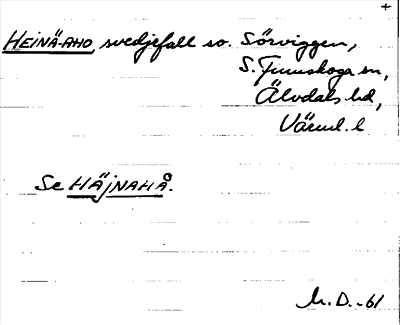 +
HEINÄ-AHO, svedjefall so. Sörviggen,
S. Finnskoga sn,
Älvdals hd,
Värml. l
Se HÄJNAHÅ.
M.D. -61